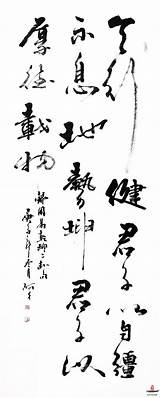 天行健君子以自彊
不息地勢坤君子以
厚德載物